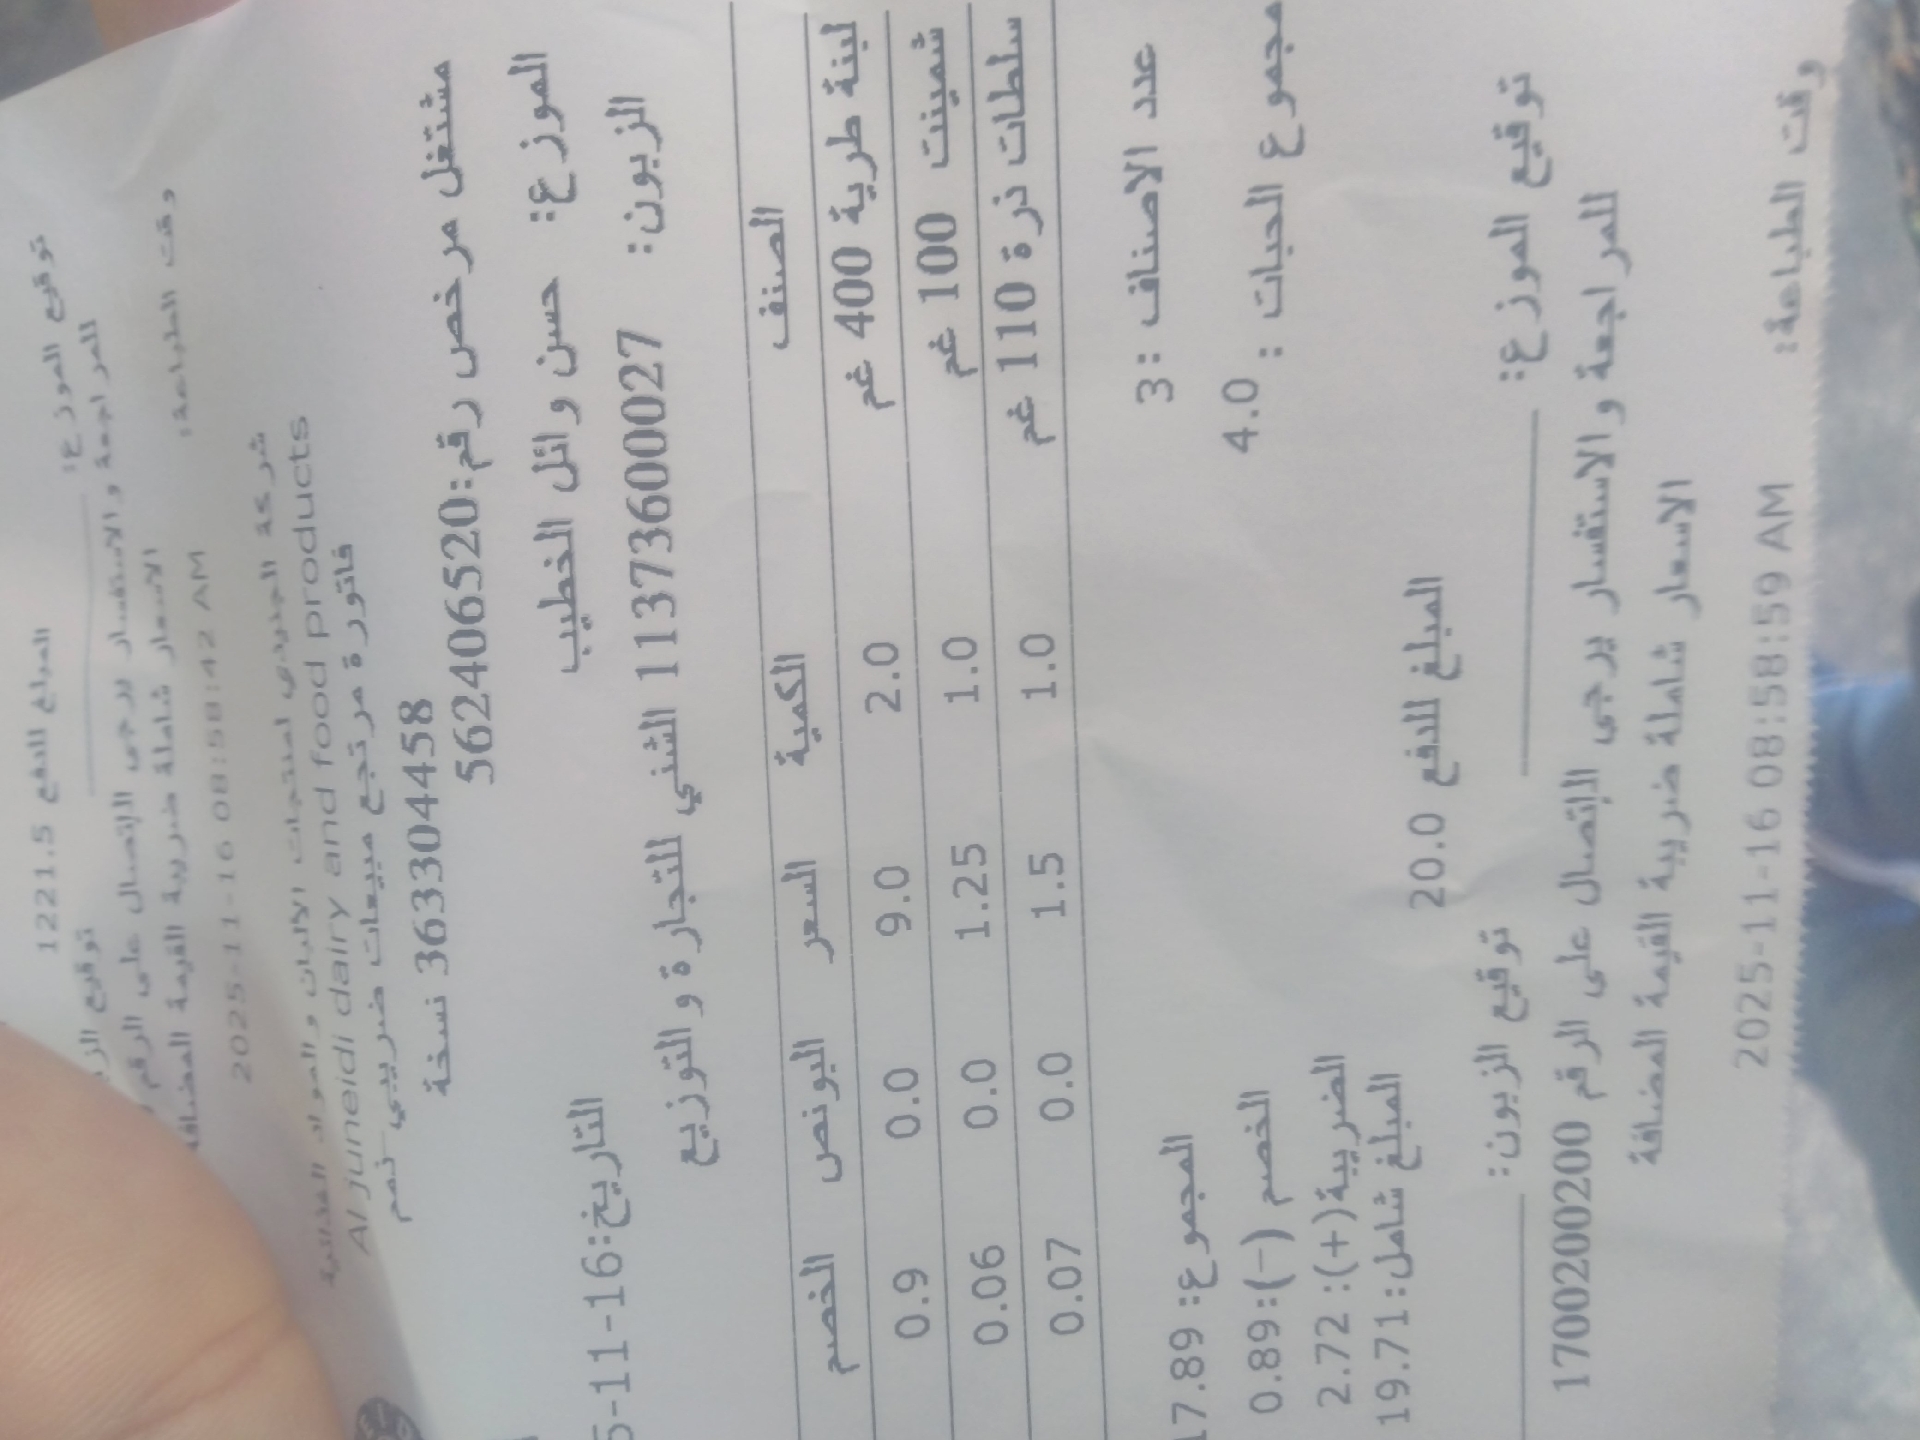 المبلغ للدفع 1221.5
توقيع الموزع:
المراجعة والاستفسار يرجى الإتصال على الرقم
الاسعار شاملة ضريبة القيمة المضافة
وقت الطباعة: 2025-11-16 08:58:42 AM
شركة الجنيدي لمنتجات الالبان و المواد الغذائية
Al juneidi dairy and food products
فاتورة مرتجع مبيعات ضريبي
3633304458 نسخة
مشتغل مرخص رقم:562406520
الموزع: حسن وائل الخطيب
التاريخ:5-11-16
الزبون: 1137360027 الثنني للتجارة والتوزيع
الصنف الكمية السعر البونص الخصم
لبنة طرية 400 غم 2.0 9.0 0.0 0.9
ثمينت 100 غم 1.0 1.25 0.0 0.06
سلطات ذرة 110 غم 1.0 1.5 0.0 0.07
عدد الاصناف :3
المجموع: 17.89
مجموع الحبات : 4.0
الخصم (-):0.89
الضريبة(+): 2.72
المبلغ شامل:19.71
المبلغ للدفع 20.0
توقيع الموزع: ____________ توقيع الزبون: ____________
للمراجعة والاستفسار يرجى الإتصال على الرقم 1700200200
الاسعار شاملة ضريبة القيمة المضافة
وقت الطباعة: 2025-11-16 08:58:59 AM